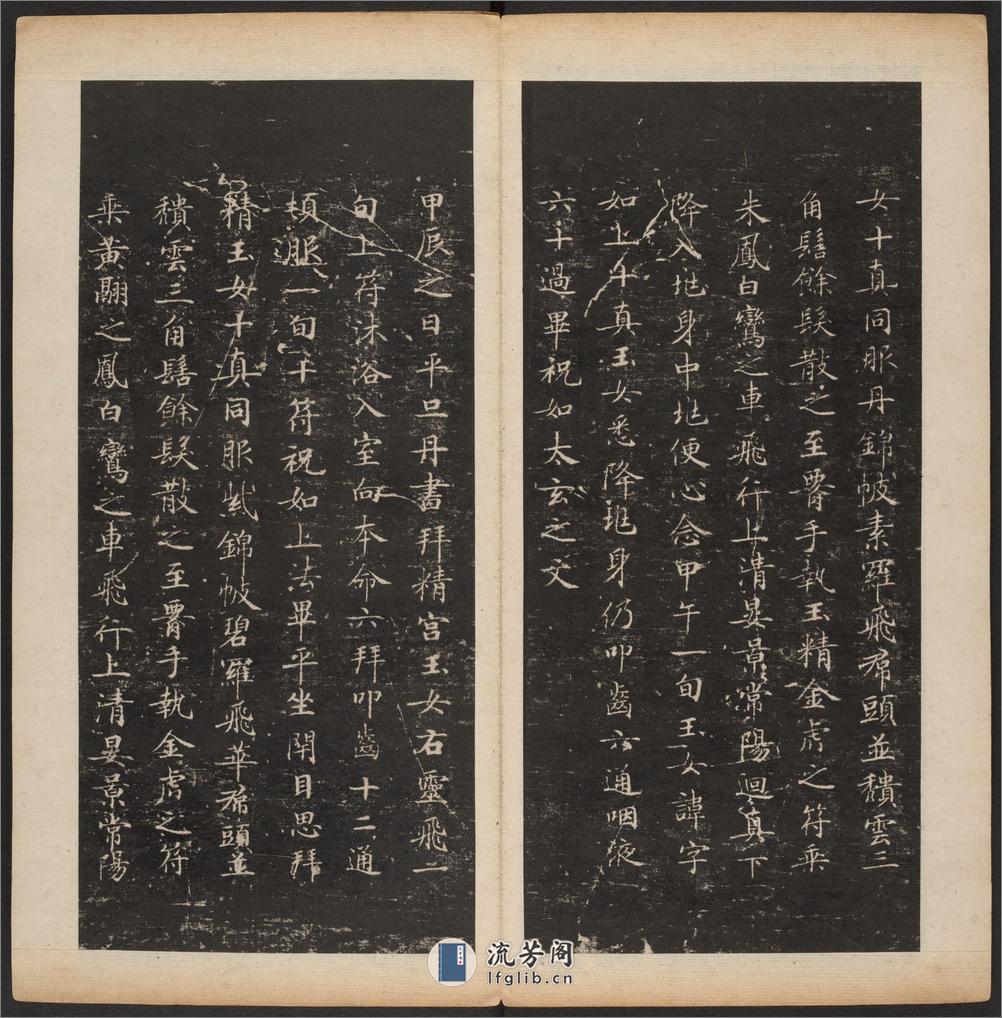 女十真同服丹錦帔素羅飛帬頭並積雲三
角髻餘髮散之至𦝫手執玉精金虎之符乘
朱鳳白鸞之車飛行上清晏景常陽迴真下
降入地身中地便心念甲午一旬玉女諱字
如上十真玉女悉降地身仍叩齒六通咽液
六十過畢祝如太玄之文
甲辰之日平旦丹書拜精宮玉女右靈飛一
旬上符沐浴入室向本命六拜叩齒十二通
頓服一旬十符祝如上法畢平坐閉目思拜
精玉女十真同服紫錦帔碧羅飛華帬頭並
積雲三角髻餘髮散之至𦝫手執金虎之符
乘黃翮之鳳白鸞之車飛行上清晏景常陽
流芳阁
lfglib.cn